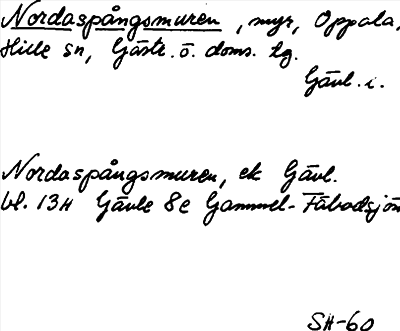 Nordaspångsmuren, myr, Oppala,
Hille sn, Gästr. ö. doms. tg.
Gävl. i.
Nordaspångsmuren, ek Gävl.
bl. 13H Gävle 8e Gammel-Fäbodsjön
SH-60